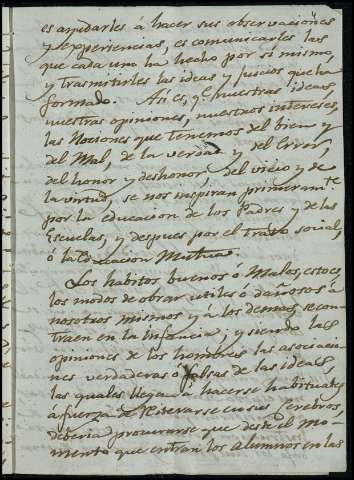 es ayudarles á hacer sus observaciones
y experiencias, es comunicarles las
que cada uno ha hecho por sí mismo,
y trasmitirles las ideas y juicios que ha
formado. Así es, q.e nuestras ideas,
nuestras opiniones, nuestros intereses,
las Nociones que tenemos del bien y
del Mal, de la verdad y del Error,
del honor y deshonor, del vicio y de
la virtud, se nos inspiran primeram.te
por la educacion de los Padres y de las
Escuelas, y despues por el trato social,
ó la Educacion Mutua.
Los habitos buenos ó Malos, esto es,
los modos de obrar utiles ó dañosos a
nosotros mismos y a los demas, se con-
traen en la Infancia, y siendo las
opiniones de los hombres las asociacio-
nes verdaderas ó falsas de las ideas,
las quales llegan a hacerse habituales
á fuerza de Reiterarse en sus Cerebros,
deberia procurarse que desde el mo-
mento que entran los alumnos en las